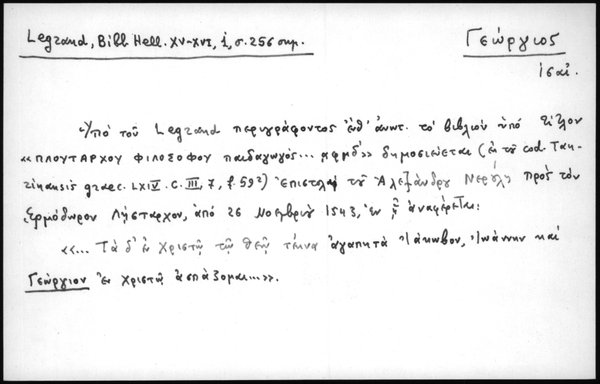 Legrand, Bibl Hell. XV-XVI, i, σ. 256 σημ.
Γεώργιος
ις αἰ.
Ὑπὸ τοῦ Legrand περιγράφοντος ἐνθ' ἀνωτ. τὸ βιβλίον ὑπὸ τίτλον
«ΠΛΟΥΤΑΡΧΟΥ ΦΙΛΟΣΟΦΟΥ παιδαγωγός... αφμδ'» δημοσιεύεται (ἐκ τοῦ cod. Tau-
rinensis graec. LXIV. C. III, 7, f. 59²) Ἐπιστολὴ τοῦ Ἀλεξάνδρου Νερούλη πρὸς τὸν
Ἑρμόδωρον Λήσταρχον, ἀπὸ 26 Νοεμβρίου 1543, ἐν ᾗ ἀναφέρεται:
«... Τὰ δ' ἐν Χριστῷ τῷ θεῷ τέκνα ἀγαπητὰ Ἰάκωβον, Ἰωάννην καὶ
Γεώργιον ἐν Χριστῷ ἀσπάζομαι...».